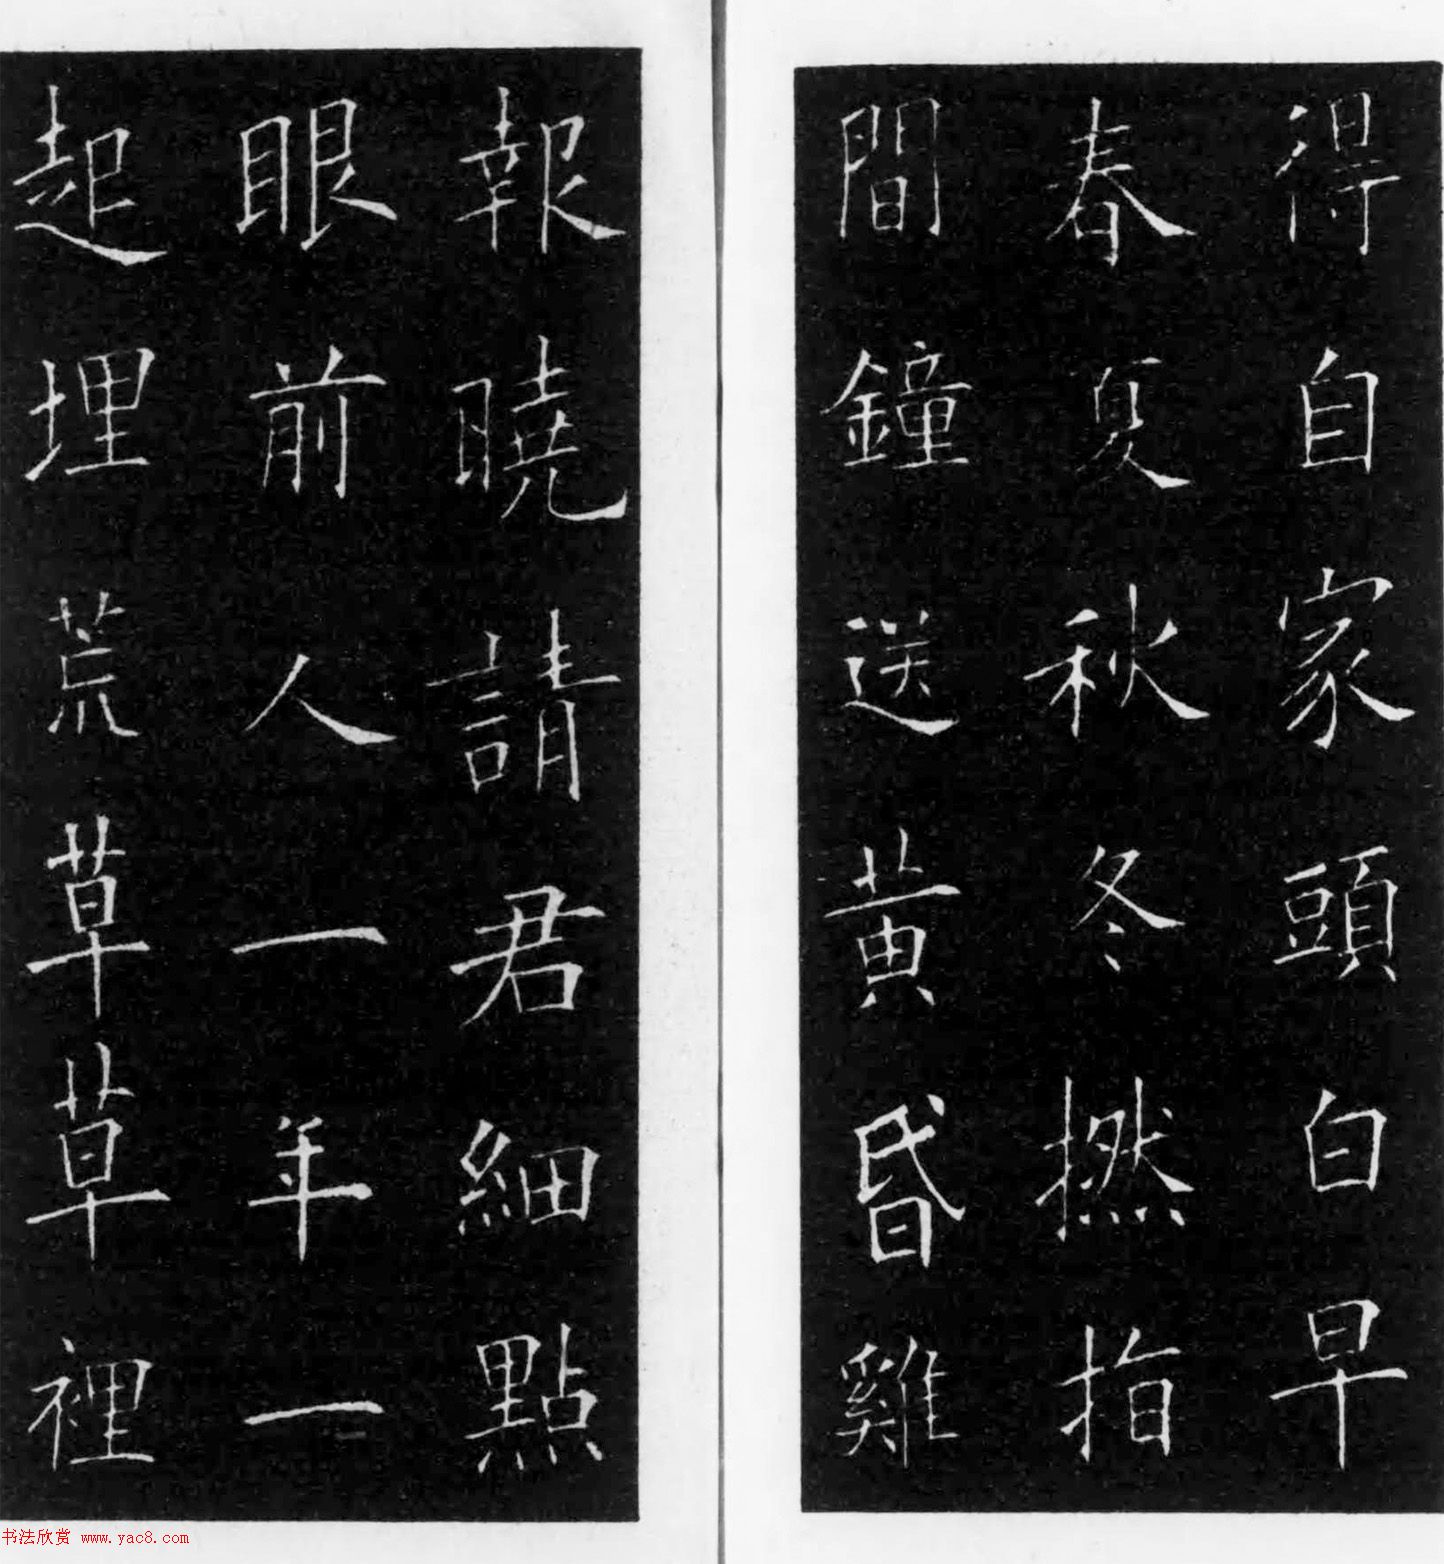 得自家頭白早
春夏秋冬撚指
間鐘送黄昏雞
報曉請君細點
眼前人一年一
起埋荒草草裡
书法欣赏 www.yac8.com